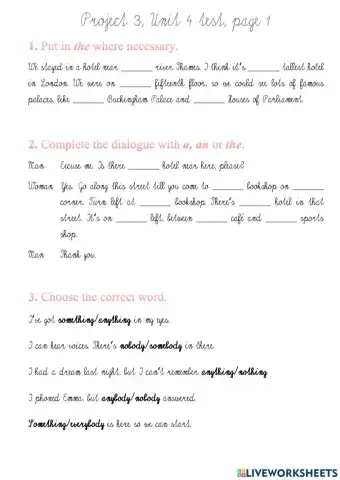 Project 3, Unit 4 test, page 1
1. Put in the where necessary.
We stayed in a hotel near _______ river Thames. I think it's _______ tallest hotel
in London. We were on _______ fifteenth floor, so we could see lots of famous
palaces, like _______ Buckingham Palace and _______ Houses of Parliament.
2. Complete the dialogue with a, an or the.
Man Excuse me. Is there _______ hotel near here, please?
Woman Yes. Go along this street till you come to _______ bookshop on _______
corner. Turn left at _______ bookshop. There's _______ hotel in that
street. It's on _______ left, between _______ café and _______ sports
shop.
Man Thank you.
3. Choose the correct word.
I've got something/anything in my eyes.
I can hear voices. There's nobody/somebody in there.
I had a dream last night, but I can't remember anything/nothing.
I phoned Emma, but anybody/nobody answered.
Something/everybody is here so we can start.
LIVEWORKSHEETS